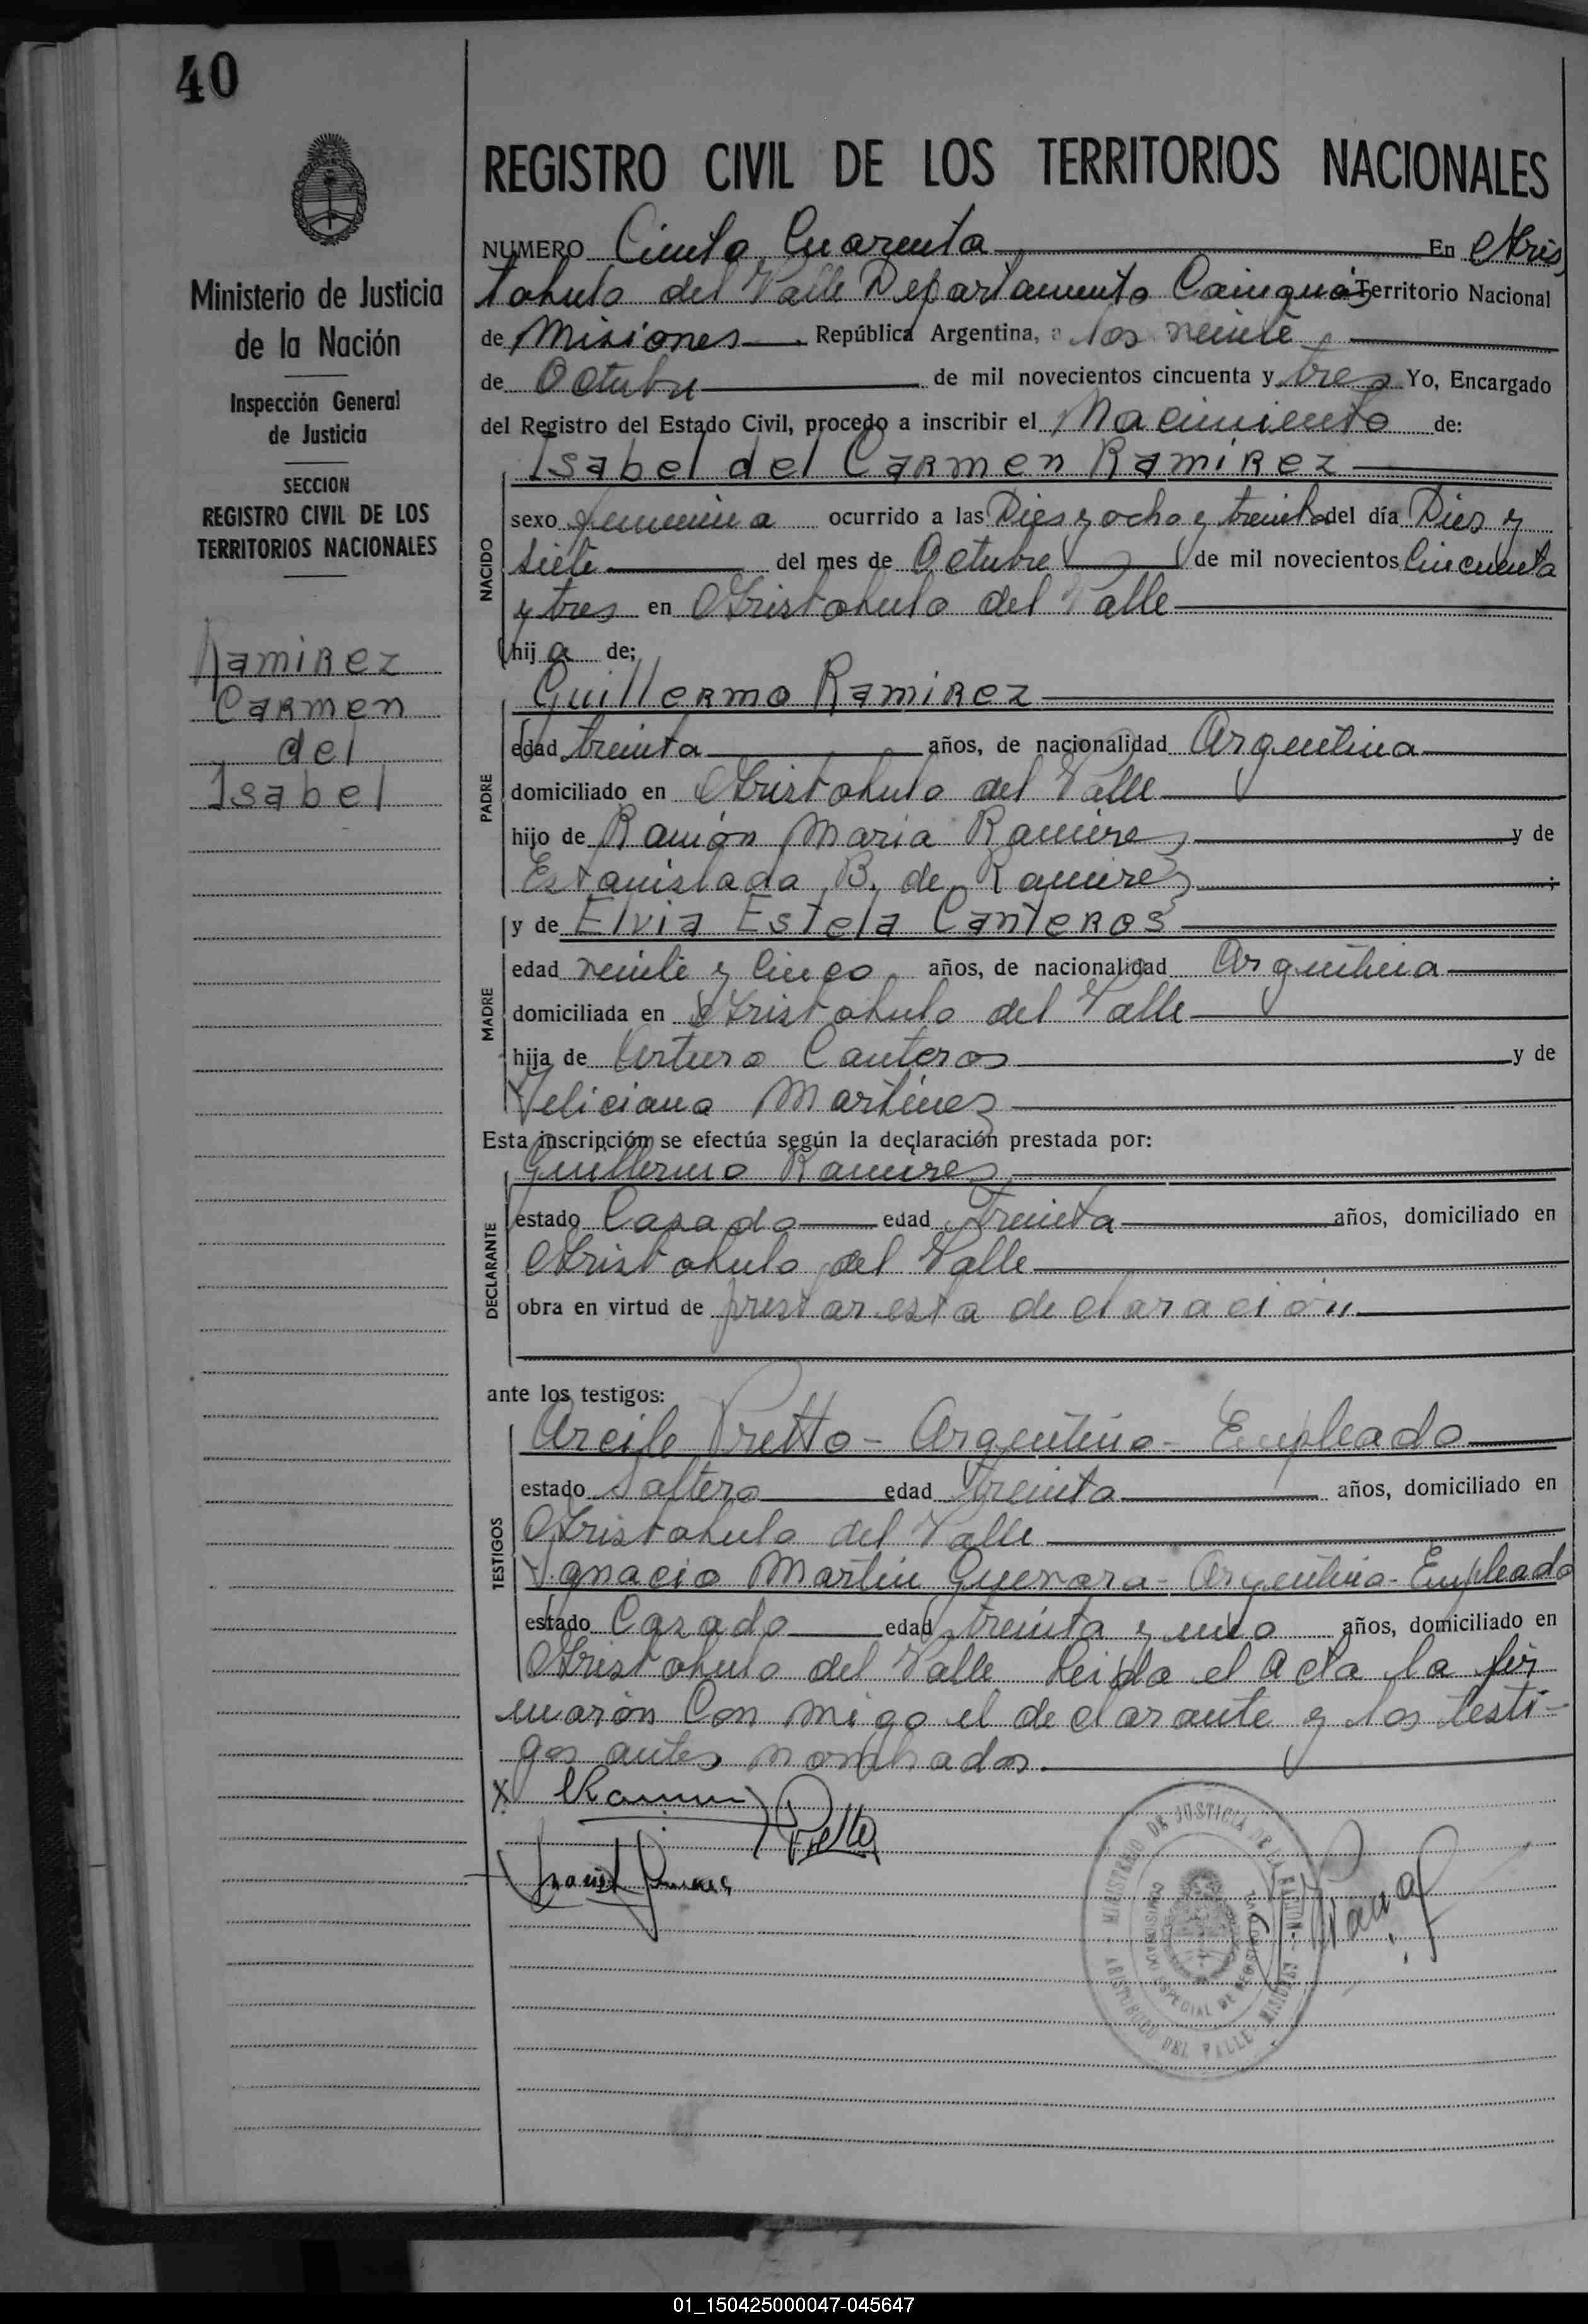 40
REGISTRO CIVIL DE LOS TERRITORIOS NACIONALES
NUMERO Ciento Cuarenta En Aris
tobulo del Valle Departamento Cainguás Territorio Nacional
de Misiones República Argentina, a los veinte
de Octubre de mil novecientos cincuenta y tres Yo, Encargado
del Registro del Estado Civil, procedo a inscribir el Nacimiento de:
Isabel del Carmen Ramirez
sexo femenina ocurrido a las Dies y ocho y treinta del día Dies y
siete del mes de Octubre de mil novecientos Cincuenta
y tres en Aristobulo del Valle
hij a de;
Guillermo Ramirez
edad treinta años, de nacionalidad Argentina
domiciliado en Aristobulo del Valle
hijo de Ramón Maria Ramirez y de
Estanislada B. de Ramirez
y de Elvia Estela Canteros
edad veinte y Cinco años, de nacionalidad Argentina
domiciliada en Aristobulo del Valle
hija de Arturo Canteros y de
Feliciana Martinez
Esta inscripción se efectúa según la declaración prestada por:
Guillermo Ramirez
estado Casado edad Treinta años, domiciliado en
Aristobulo del Valle
obra en virtud de prestar esta declaración
ante los testigos:
Pretto - Argentino - Empleado
estado Soltero edad Treinta años, domiciliado en
Aristobulo del Valle
Ygnacio Martin Guevara - Argentino - Empleado
estado Casado edad treinta y uno años, domiciliado en
Aristobulo del Valle leida el acta la fir
marón Con migo el declarante y los testi-
gos antes nombrados.
NACIDO
PADRE
MADRE
DECLARANTE
TESTIGOS
Ministerio de Justicia
de la Nación
Inspección General
de Justicia
SECCION
REGISTRO CIVIL DE LOS
TERRITORIOS NACIONALES
Ramirez
Carmen
del
Isabel
X
Pretto
MINISTERIO DE JUSTICIA DE LA NACION
ARISTOBULO DEL VALLE - MISIONES
ESPECIAL DE
01_150425000047-045647